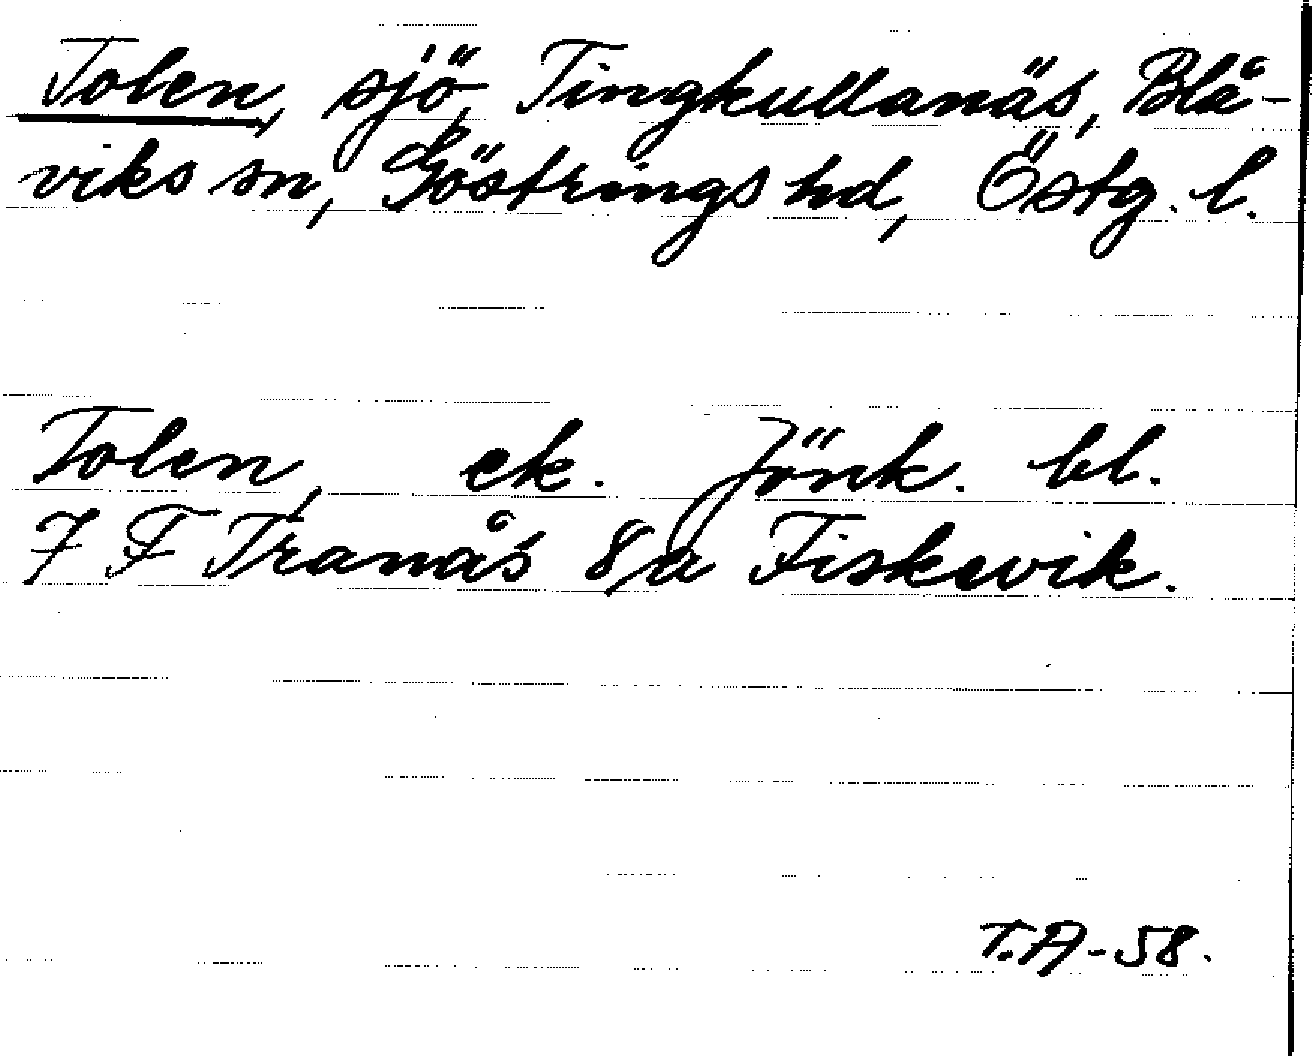 Tolen, sjö, Tingkullanäs, Blå-
viks sn, Göstrings hd, Östg. l.
Tolen, ek. Jönk. bl.
7 F Tranås 8 a Fiskevik.
T.A-58.